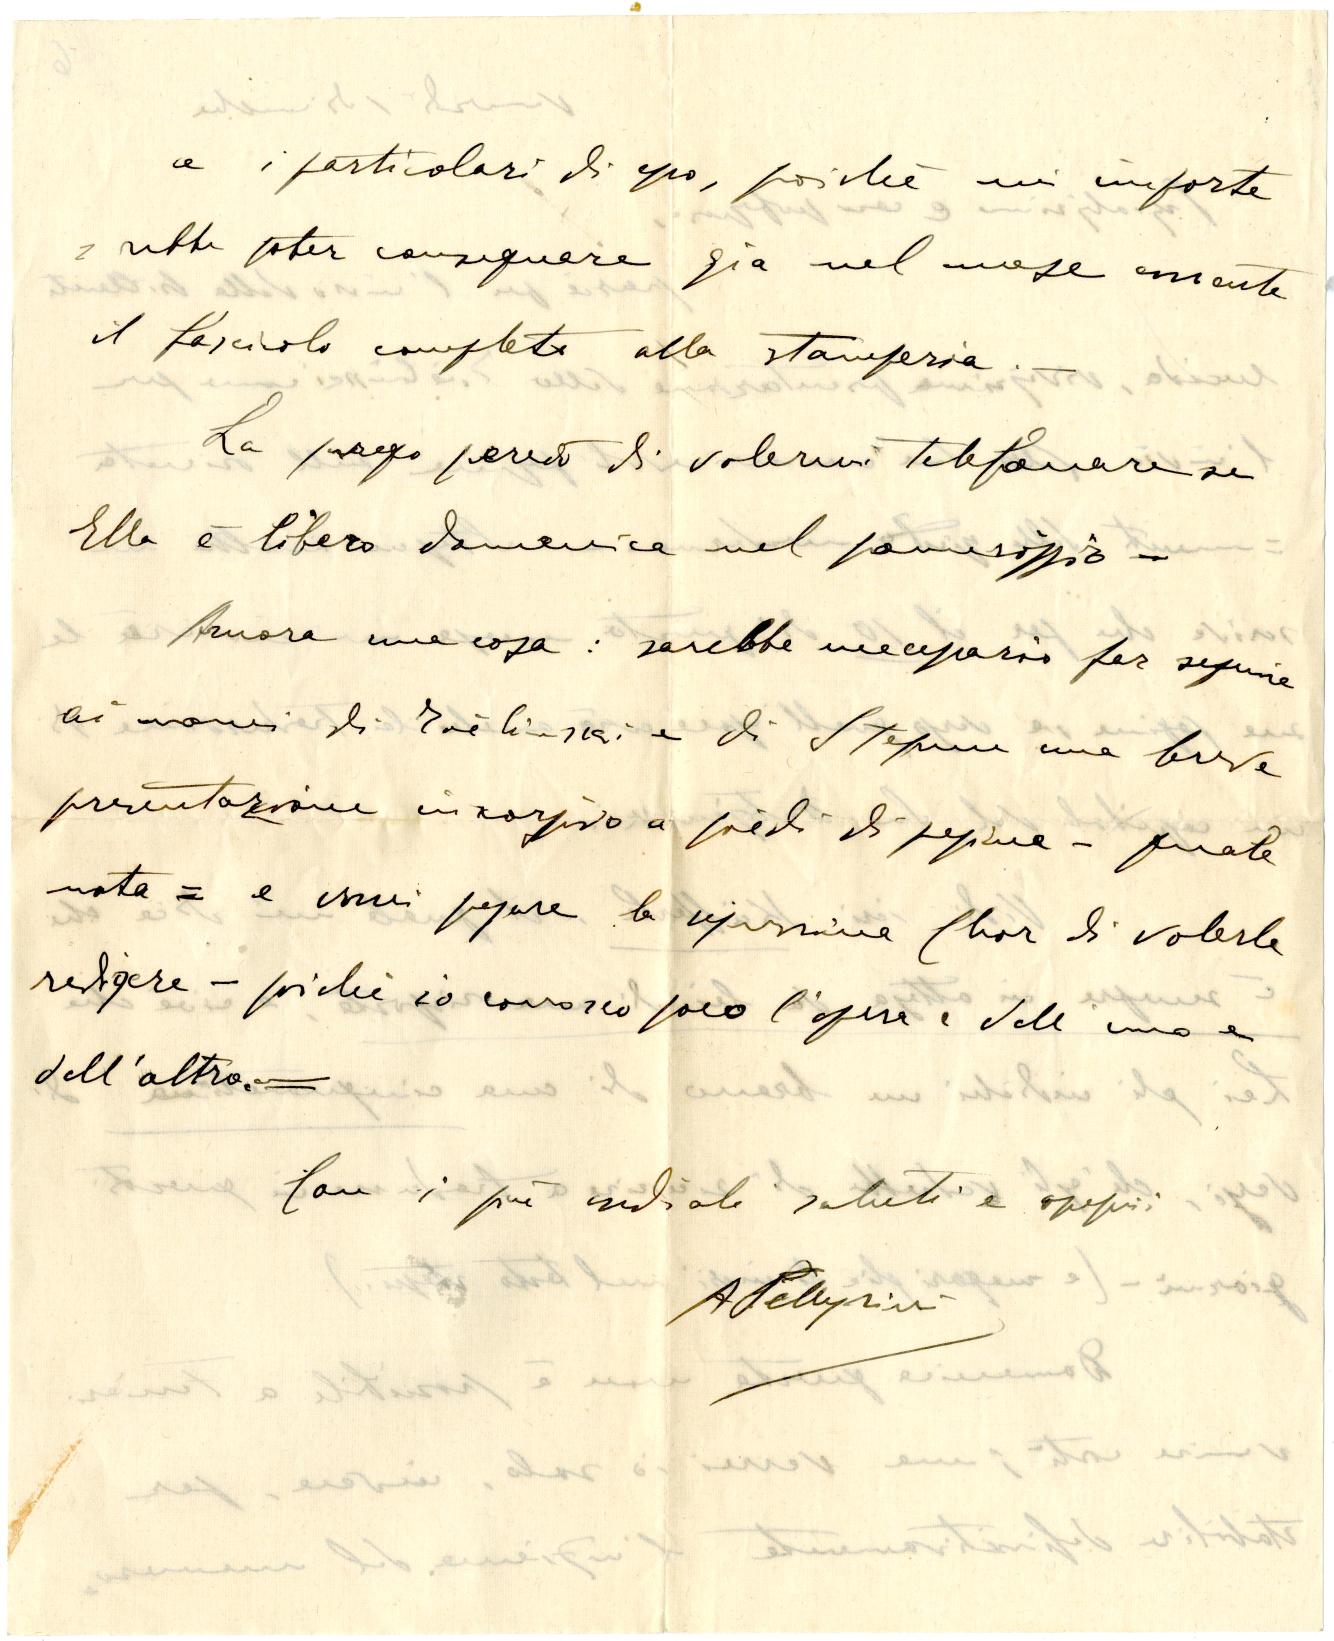 e i particolari di esso, poiché mi importe
= rebbe poter consegnare già nel mese corrente
il fascicolo completo alla stamperia. —
La prego perciò di volermi telefonare se
Ella è libero domenica nel pomeriggio —
Ancora una cosa : sarebbe necessario far seguire
ai nomi di Zielinski e di Stepun una breve
presentazione in corsivo a piedi di pagina — quale
nota = e vorrei pregare la signorina Chor di volerle
redigere — poiché io conosco poco l'opera e dell'uno e
dell'altro. =
Con i più cordiali saluti e ossequi
A Pellegrini